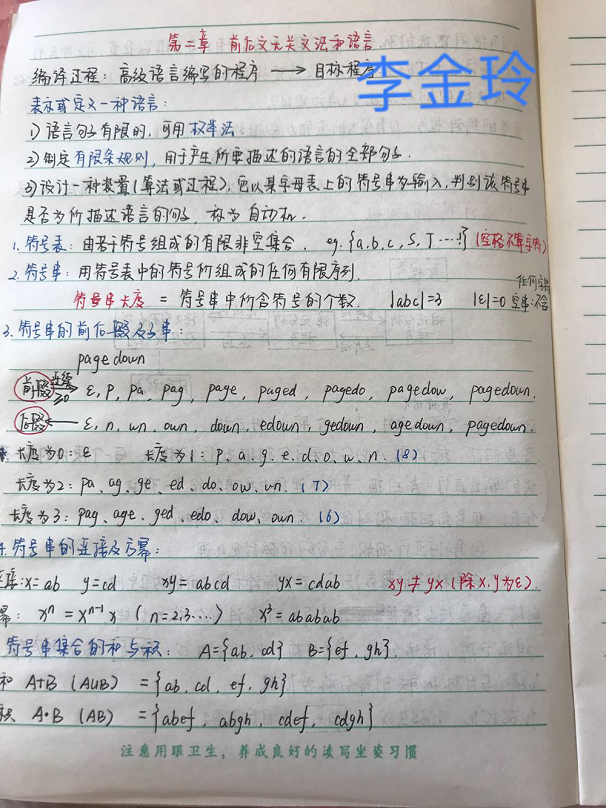 第二章 前后文无关文法和语言
编译过程：高级语言编写的程序 ⟶ 目标程序
李金玲
表示或定义一种语言：
1) 语言句子有限的，可用枚举法
2) 制定有限条规则，用于产生所要描述的语言的全部句子．
3) 设计一种装置(算法或过程)，它以某字母表上的符号串为输入，判别该符号串
是否为所描述语言的句子，称为自动机．
1. 符号表：由若干符号组成的有限非空集合． eg. {a, b, c, S, T ⋯!} (空格不算字符)
2. 符号串：用符号表中的符号所组成的任何有限序列．
任何字符
符号串长度 = 符号串中所含符号的个数． |abc|=3 |ε|=0 空串:不含
3. 符号串的前后缀及子串：
page down
前缀 连续 ≥0 ε, p, pa, pag, page, paged, pagedo, pagedow, pagedown.
后缀 ε, n, wn, own, down, edown, gedown, agedown, pagedown.
长度为0：ε 长度为1：p、a、g、e、d、o、w、n. (8)
长度为2：pa、ag、ge、ed、do、ow、wn. (7)
长度为3：pag、age、ged、edo、dow、own. (6)
4. 符号串的连接及方幂：
连接:x=ab y=cd xy=abcd yx=cdab xy≠yx (除x,y为ε)
幂： xⁿ = xⁿ⁻¹x (n=2,3⋯) x³=ababab
符号串集合的和与积： A={ab, cd} B={ef, gh}.
和 A+B (A∪B) = {ab, cd, ef, gh}
积 A•B (AB) = {abef, abgh, cdef, cdgh}
注意用眼卫生，养成良好的读写坐姿习惯